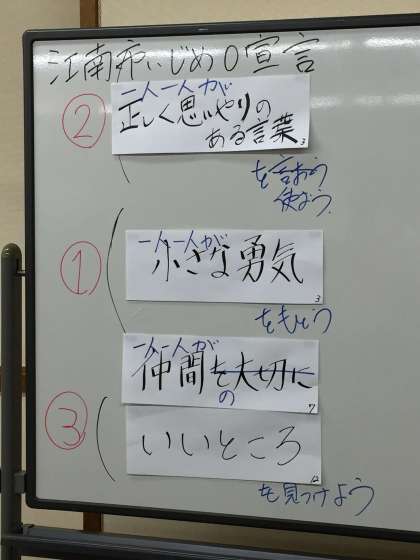 江南市いじめ0宣言
②
一人一人が
正しく思いやりの
ある言葉
3
を言おう
使おう
①
一人一人が
小さな勇気
3
をもとう
一人一人が
仲間を大切に
の
7
③
いいところ
12
を見つけよう